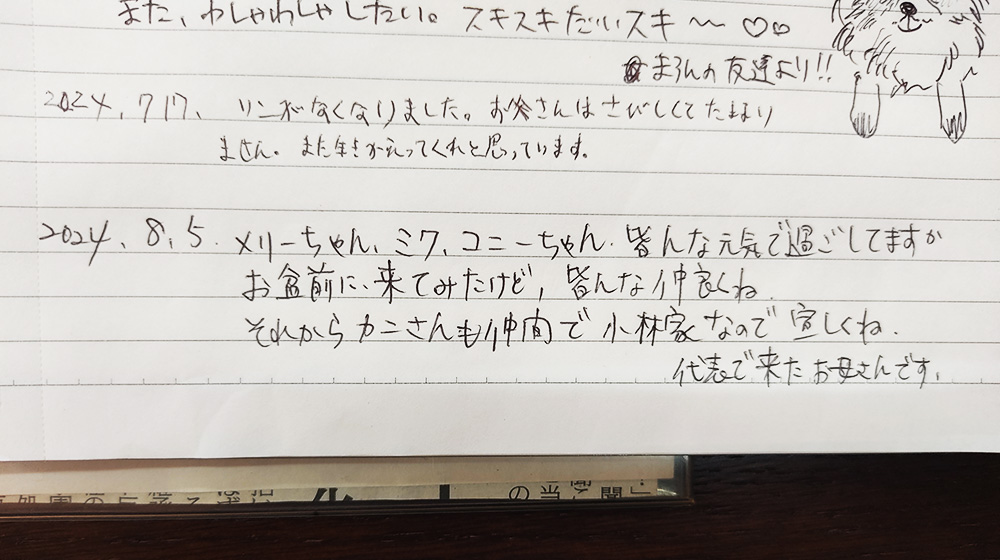 また、わしゃわしゃしたい。スキスキだいスキ〜♡♡
まろんの友達より!!
2024.7 17、 リンがなくなりました。お父さんはさびしくてたまり
ません。また生きかえってくれと思っています。
2024.8.5. メリーちゃん、ミク、コニーちゃん.皆んな元気で過ごしてますか
お盆前に、来てみたけど,皆んな仲良くね.
それからカニさんも仲間で小林家なので宜しくね.
代表で来たお母さんです.